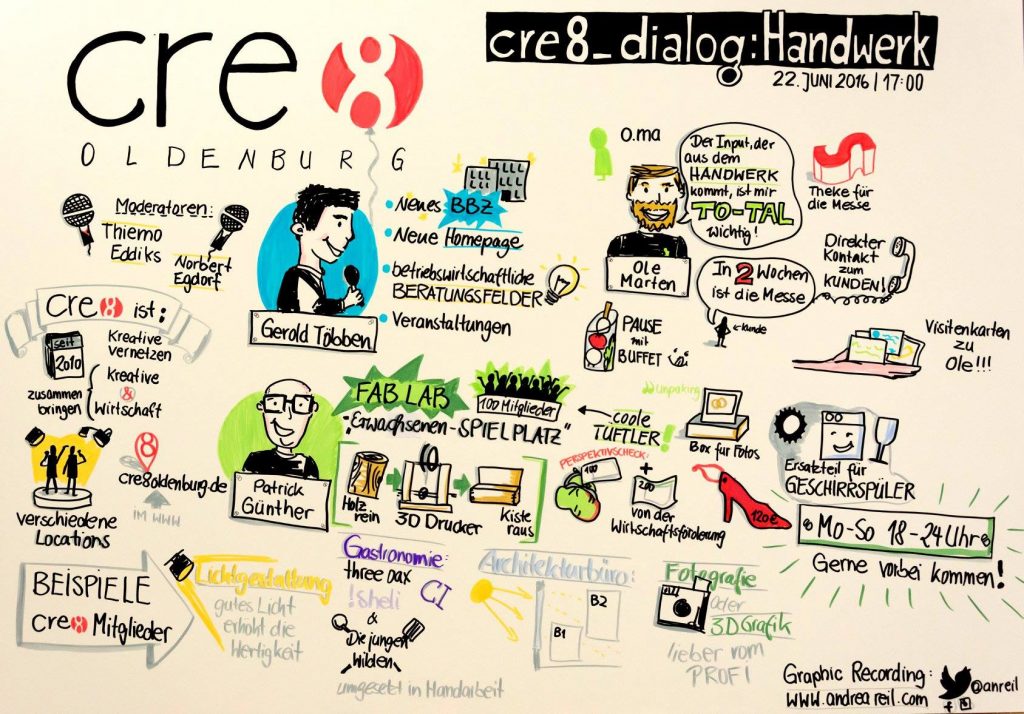 cre8
OLDENBURG
cre8_dialog:Handwerk
22. JUNI 2016 | 17:00
Moderatoren:
Thiemo
Eddiks
Norbert
Egdorf
Gerold Többen
• Neues BBZ
• Neue Homepage
• betriebswirtschaftliche
BERATUNGSFELDER
• Veranstaltungen
O.ma
Der Input, der
aus dem
HANDWERK
kommt, ist mir
TO-TAL
wichtig!
Ole
Marten
In 2 Wochen
ist die Messe
← Kunde
Theke für
die Messe
Direkter
Kontakt
zum
KUNDEN!
PAUSE
mit
BUFFET
Visitenkarten
zu
Ole!!!
cre8 ist:
seit
2010
Kreative
vernetzen
zusammen
bringen
Kreative
&
Wirtschaft
verschiedene
Locations
8
cre8oldenburg.de
IM WWW
Patrick
Günther
FAB LAB
100 Mitglieder
"Erwachsenen-SPIELPLATZ"
coole
TÜFTLER!
Unpaking
Box für Fotos
Holz
rein
3D Drucker
Kiste
raus
PERSPEKTIVSCHECK:
100
+
200
von der
Wirtschaftsförderung
120€
Ersatzteil für
GESCHIRRSPÜLER
Mo-So 18-24 Uhr
Gerne vorbei kommen!
BEISPIELE
cre8 Mitglieder
Lichtgestaltung
gutes Licht
erhöht die
Wertigkeit
Gastronomie:
three oax
!sheli
CI
&
Die jungen
wilden
umgesetzt in Handarbeit
Architekturbüro:
B2
B1
Fotografie
oder
3D Grafik
lieber vom
PROFI
Graphic Recording:
www.andreareil.com
@anreil
f